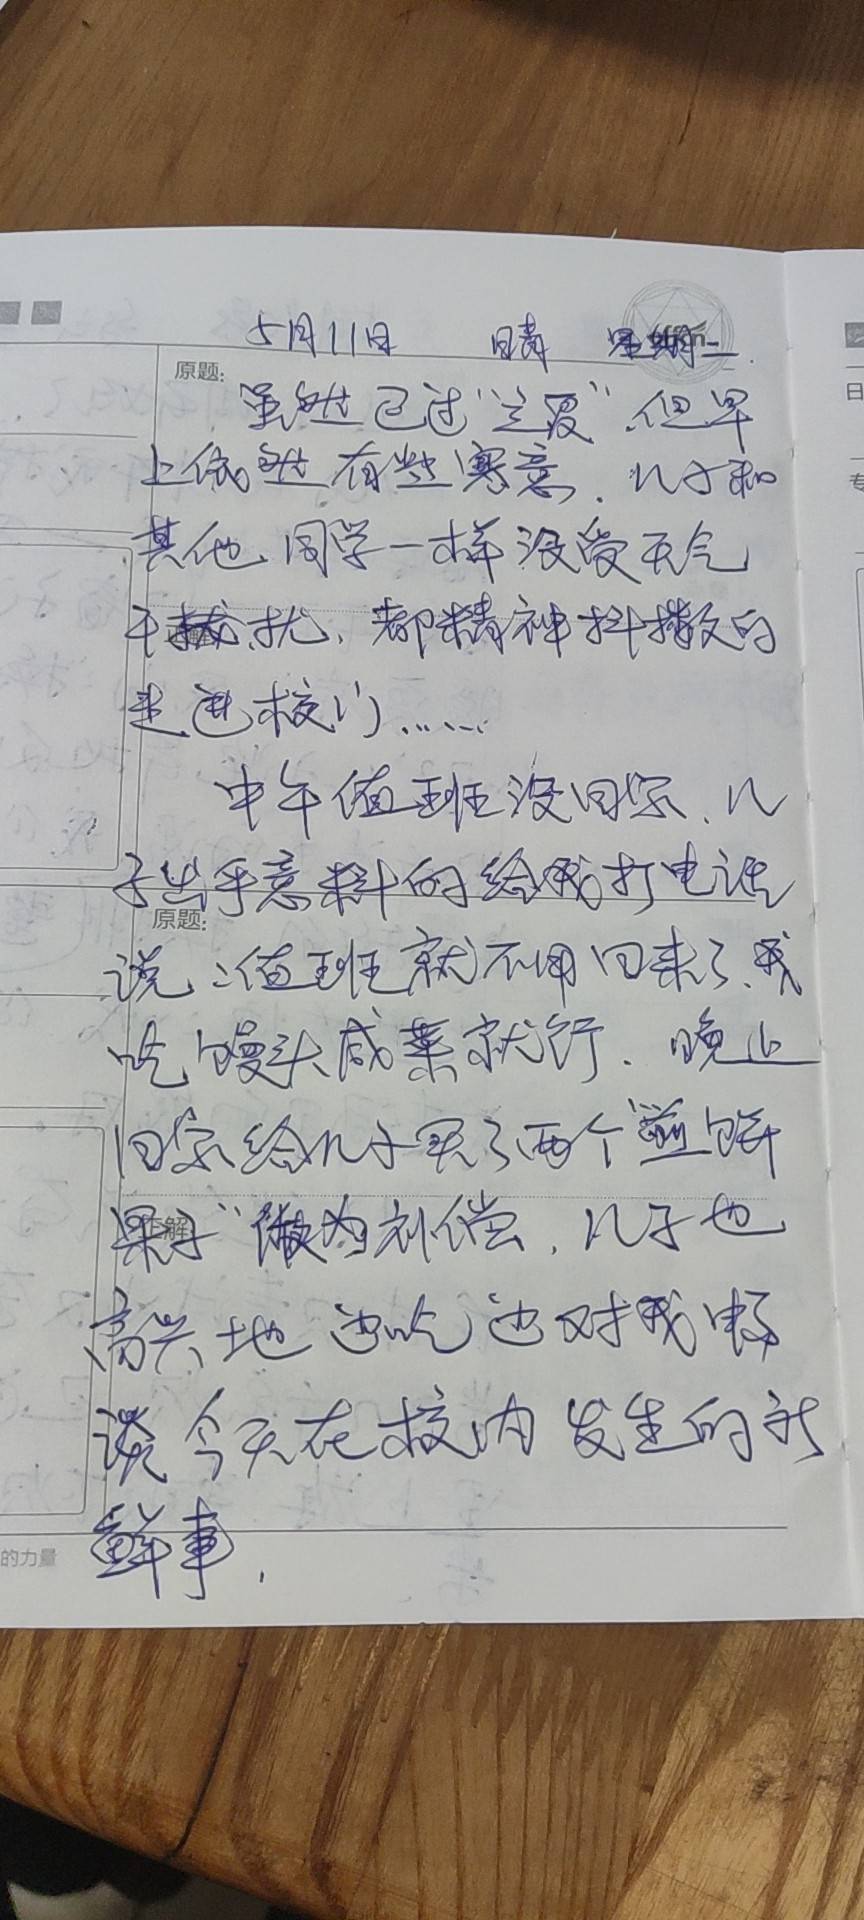 5月11日 晴 星期二
原题:
虽然已过“立夏”,但早
上依然有些寒意,儿子和
其他同学一样没受天气
干扰,都精神抖擞的
走进校门……
中午值班没回家,儿
子出乎意料的给我打电话
原题:
说:值班就不用回来了,我
吃馒头咸菜就行.晚上
回家给儿子买了两个“煎饼
果子”做为补偿,儿子也
正解
高兴地边吃边对我畅
谈今天在校内发生的新
鲜事.
的力量
日
专